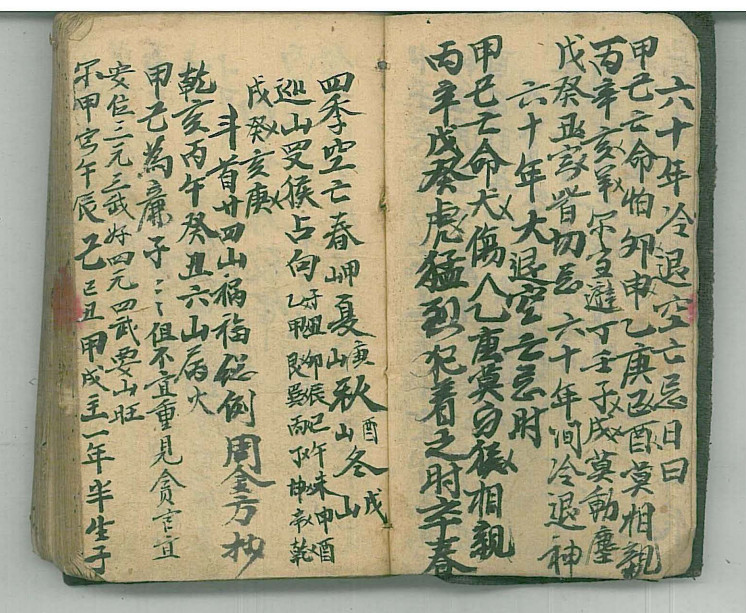 六十年冷退空亡忌日曰
甲己亡命怕卯申乙庚巳酉莫相親
丙辛亥羊宜避丁壬子戌莫動塵
戊癸丑家皆切忌 六十年间冷退神
六十年大退空亡忌时
甲己亡命犬傷人乙庚莫勿猴相親
丙辛戊癸虎猛到犯着之时
四季空亡春山甲夏山庚秋山酉冬山戌
巡山罗猴占向子丑卯辰巳午未申酉
乙甲艮巽丙丁坤辛乾
戌癸亥庚
斗首廿四山禍福總例 周全方抄
乾亥丙午癸丑六山屬火
甲己為廉子〻但不宜重見貪官宜
安位三元三武好四元四武要山旺
甲宫午辰己己丑甲戌主一年半生子